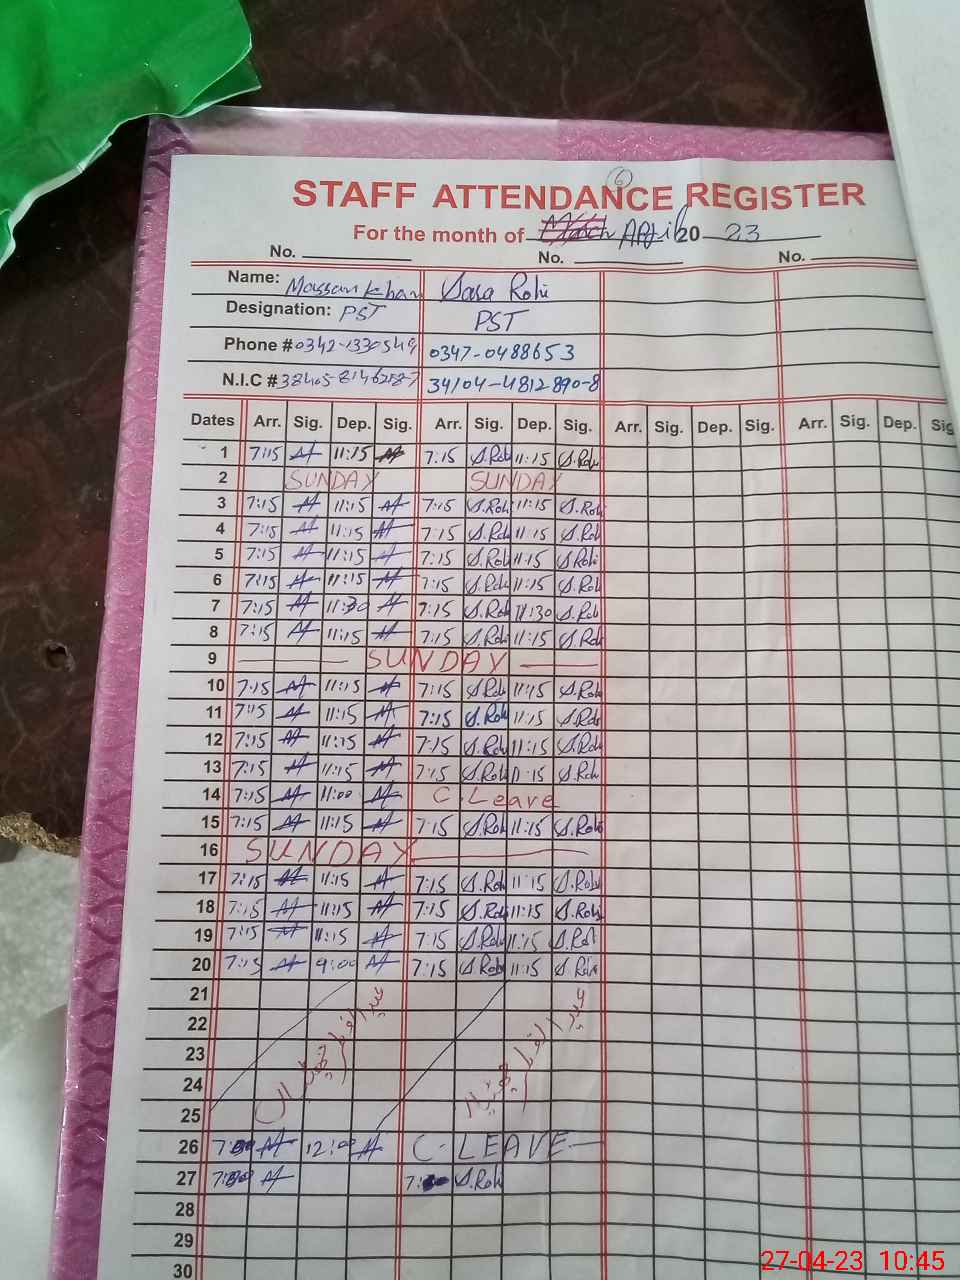 6
STAFF ATTENDANCE REGISTER
For the month of March April 20 23
No. No. No.
Name: Massan Khan Sara Rohi
Designation: PST PST
Phone # 0342-1330549 0347-0488653
N.I.C # 38405-8146258-7 34104-4812890-8
Dates Arr. Sig. Dep. Sig. Arr. Sig. Dep. Sig. Arr. Sig. Dep. Sig. Arr. Sig. Dep. Sig
1 7:15 11:15 7:15 S.Rohi 11:15 S.Rohi
2 SUNDAY SUNDAY
3 7:15 11:15 7:15 S.Rohi 11:15 S.Rohi
4 7:15 11:15 7:15 S.Rohi 11:15 S.Rohi
5 7:15 11:15 7:15 S.Rohi 11:15 S.Rohi
6 7:15 11:15 7:15 S.Rohi 11:15 S.Rohi
7 7:15 11:30 7:15 S.Rohi 11:30 S.Rohi
8 7:15 11:15 7:15 S.Rohi 11:15 S.Rohi
9 SUNDAY
10 7:15 11:15 7:15 S.Rohi 11:15 S.Rohi
11 7:15 11:15 7:15 S.Rohi 11:15 S.Rohi
12 7:15 11:15 7:15 S.Rohi 11:15 S.Rohi
13 7:15 11:15 7:15 S.Rohi 11:15 S.Rohi
14 7:15 11:00 C.Leave
15 7:15 11:15 7:15 S.Rohi 11:15 S.Rohi
16 SUNDAY
17 7:15 11:15 7:15 S.Rohi 11:15 S.Rohi
18 7:15 11:15 7:15 S.Rohi 11:15 S.Rohi
19 7:15 11:15 7:15 S.Rohi 11:15 S.Rohi
20 7:15 9:00 7:15 S.Rohi 11:15 S.Rohi
21
22
23
24
25
عید الفطر چھٹیاں عید الفطر چھٹیاں
26 12:00 C-LEAVE
27 S.Rohi
28
29
30
27-04-23 10:45